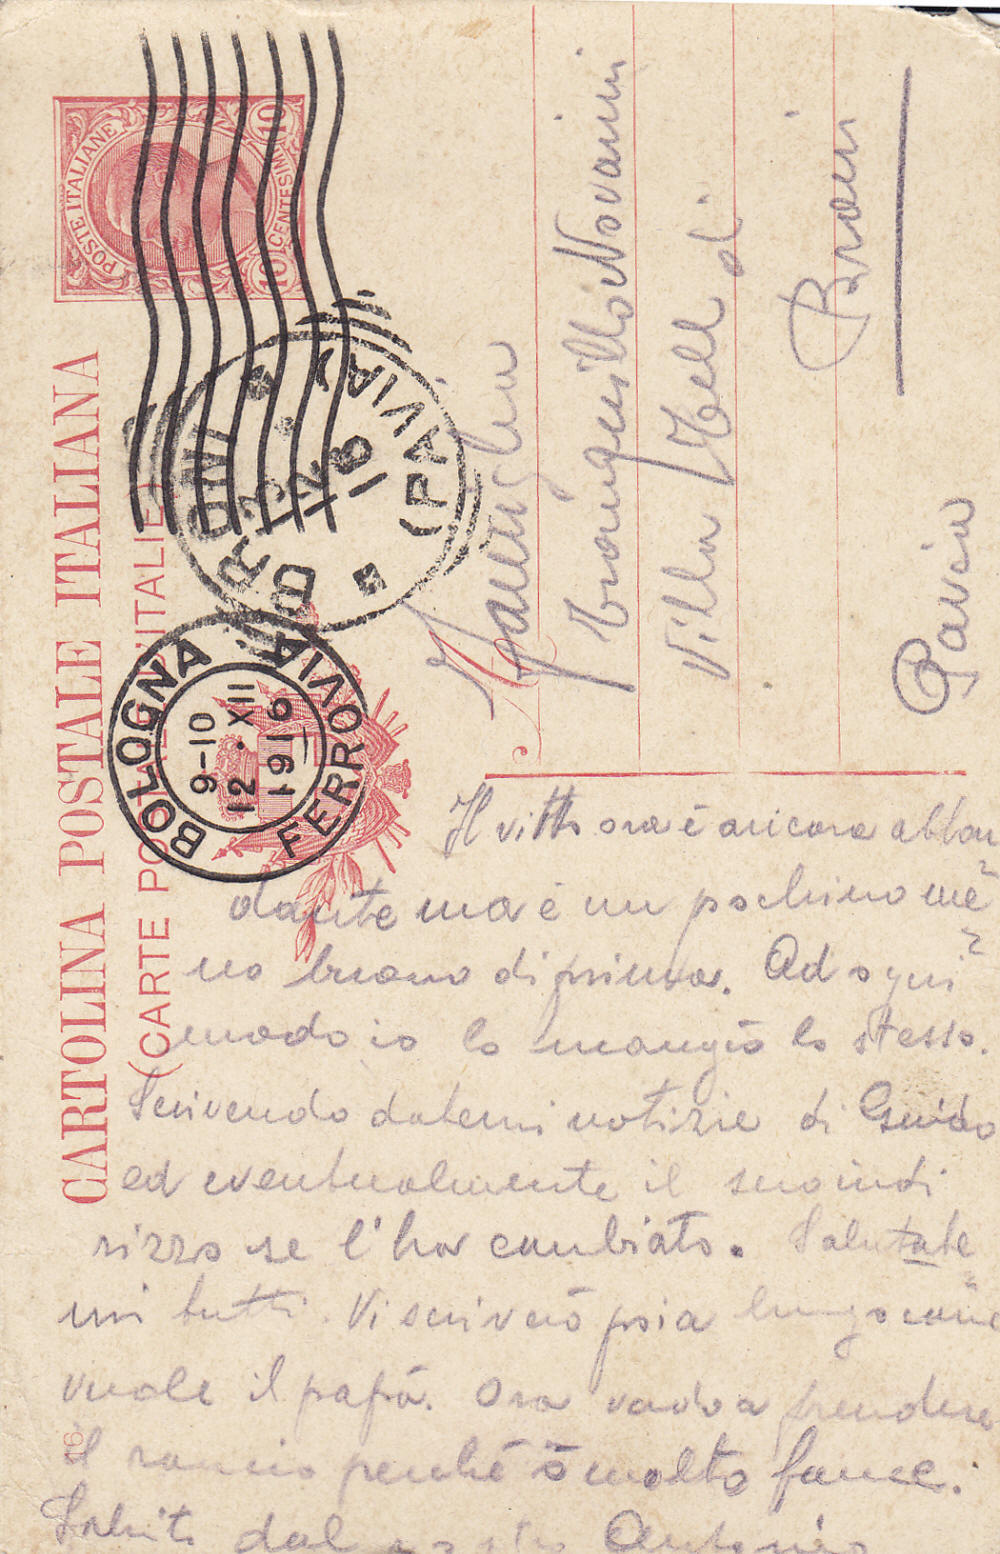 POSTE ITALIANE
10 CENTESIMI 10
CARTOLINA POSTALE ITALIANA
(CARTE POSTALE D'ITALIE)
BRONI
12
16
(PAVIA)
BOLOGNA
9-10
12 · XII
1916
FERROVIA
A
Famiglia
Tranquillo Novarini
Villa Mell di
Broni
Pavia
Il vitto ora è ancora abbon
dante ma è un pochino me=
no buono di prima. Ad ogni=
modo io lo mangio lo stesso.
Scrivendo datemi notizie di Guido
ed eventualmente il suo indi
rizzo se l'ha cambiato. Salutate
mi tutti. Vi scriverò poi a lungo come=
vuole il papà. Ora vado a prendere
il rancio perché ò molta fame.
Saluti dal vostro Antonio
16